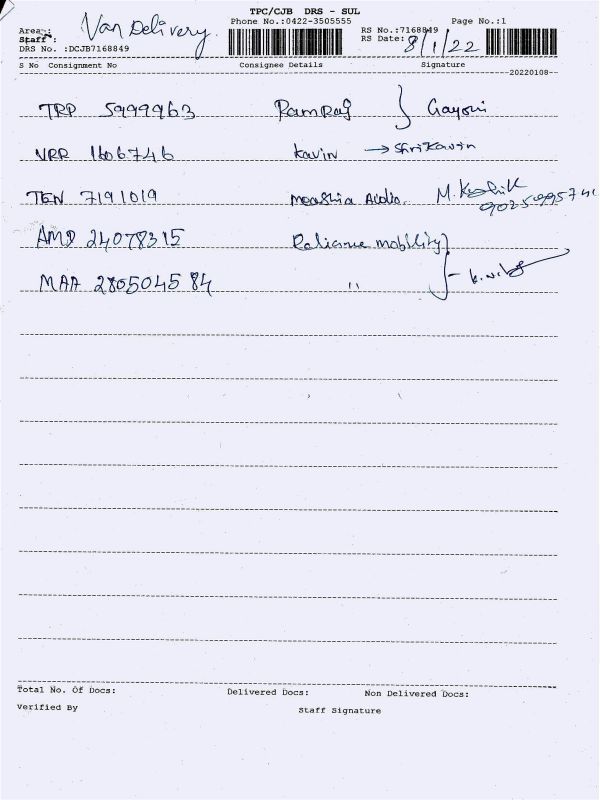 TPC/CJB DRS - SUL
Area : Van Delivery Phone No.:0422-3505555 RS No.:7168849 Page No.:1
Staff : RS Date: 8/1/22
DRS No. :DCJB7168849
S No Consignment No Consignee Details Signature
20220108
TRP 5999963 Ramraj } Gayatri
VRR 1606746 Kavin → ShriKavin
TEN 7191019 M.
AMD 24078315 Reliance mobility
MAA 280504584 "
Total No. Of Docs: Delivered Docs: Non Delivered Docs:
Verified By Staff Signature